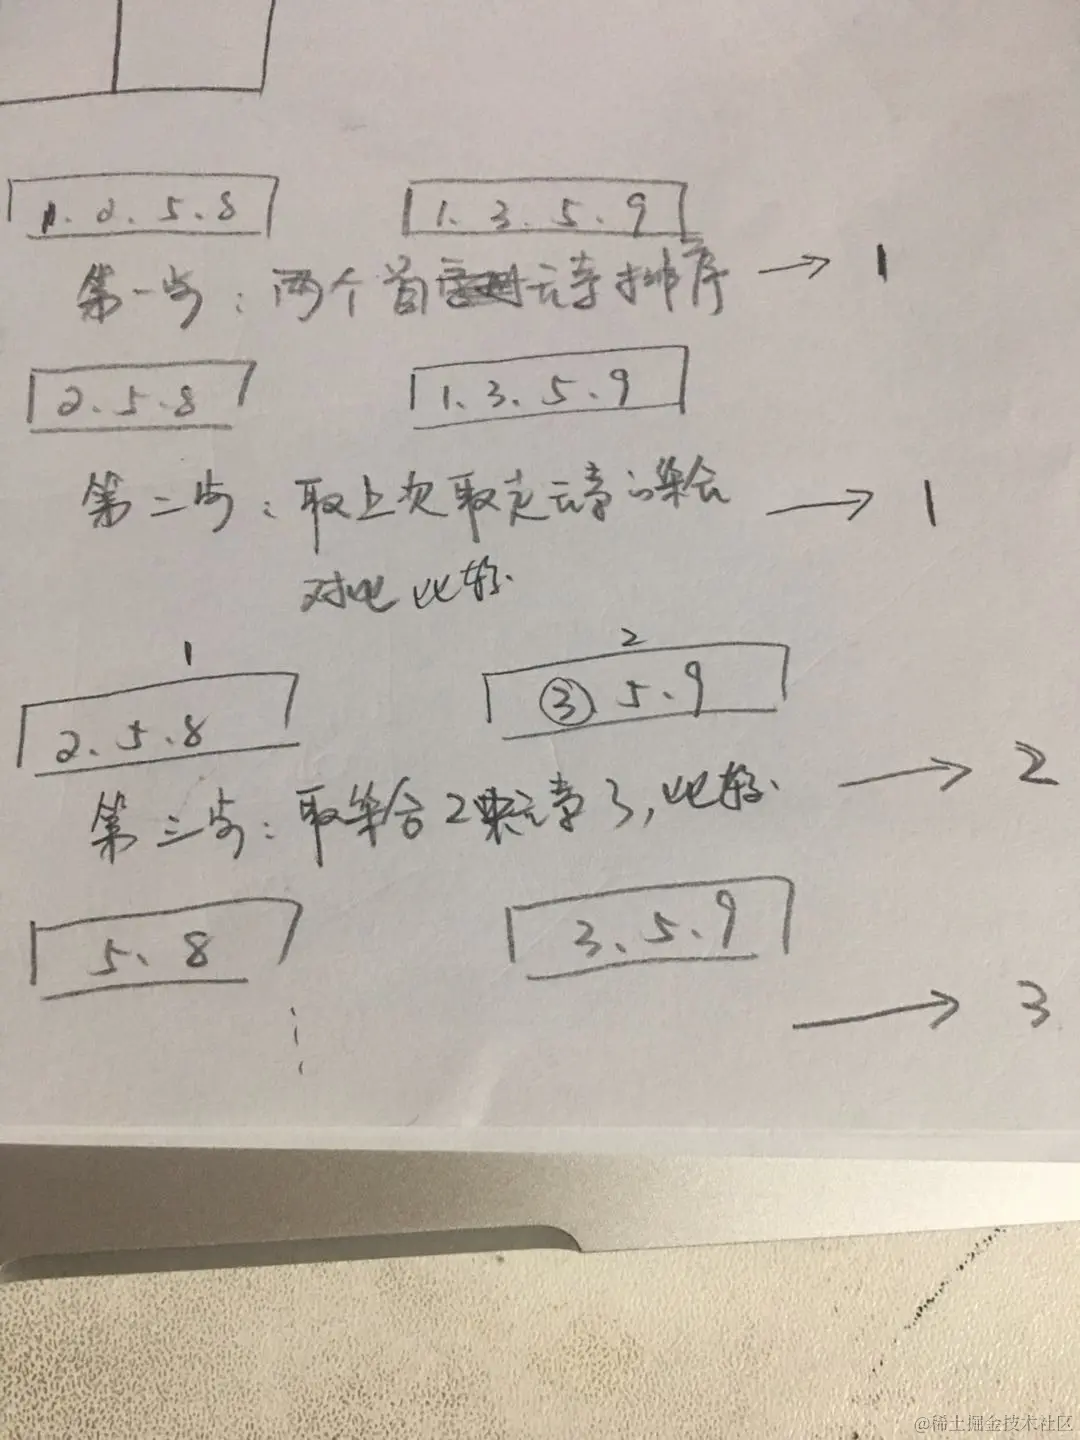 1.2.5.8 1.3.5.9
第一步:两个首元素排序 → 1
2、5、8 1、3、5、9
第二步:取上次取走元素的集合 → 1
对比 比较.
1 2
2、5、8 ③、5、9
第三步:取集合2 元素3,比较. → 2
5、8 3、5、9
→ 3
@稀土掘金技术社区